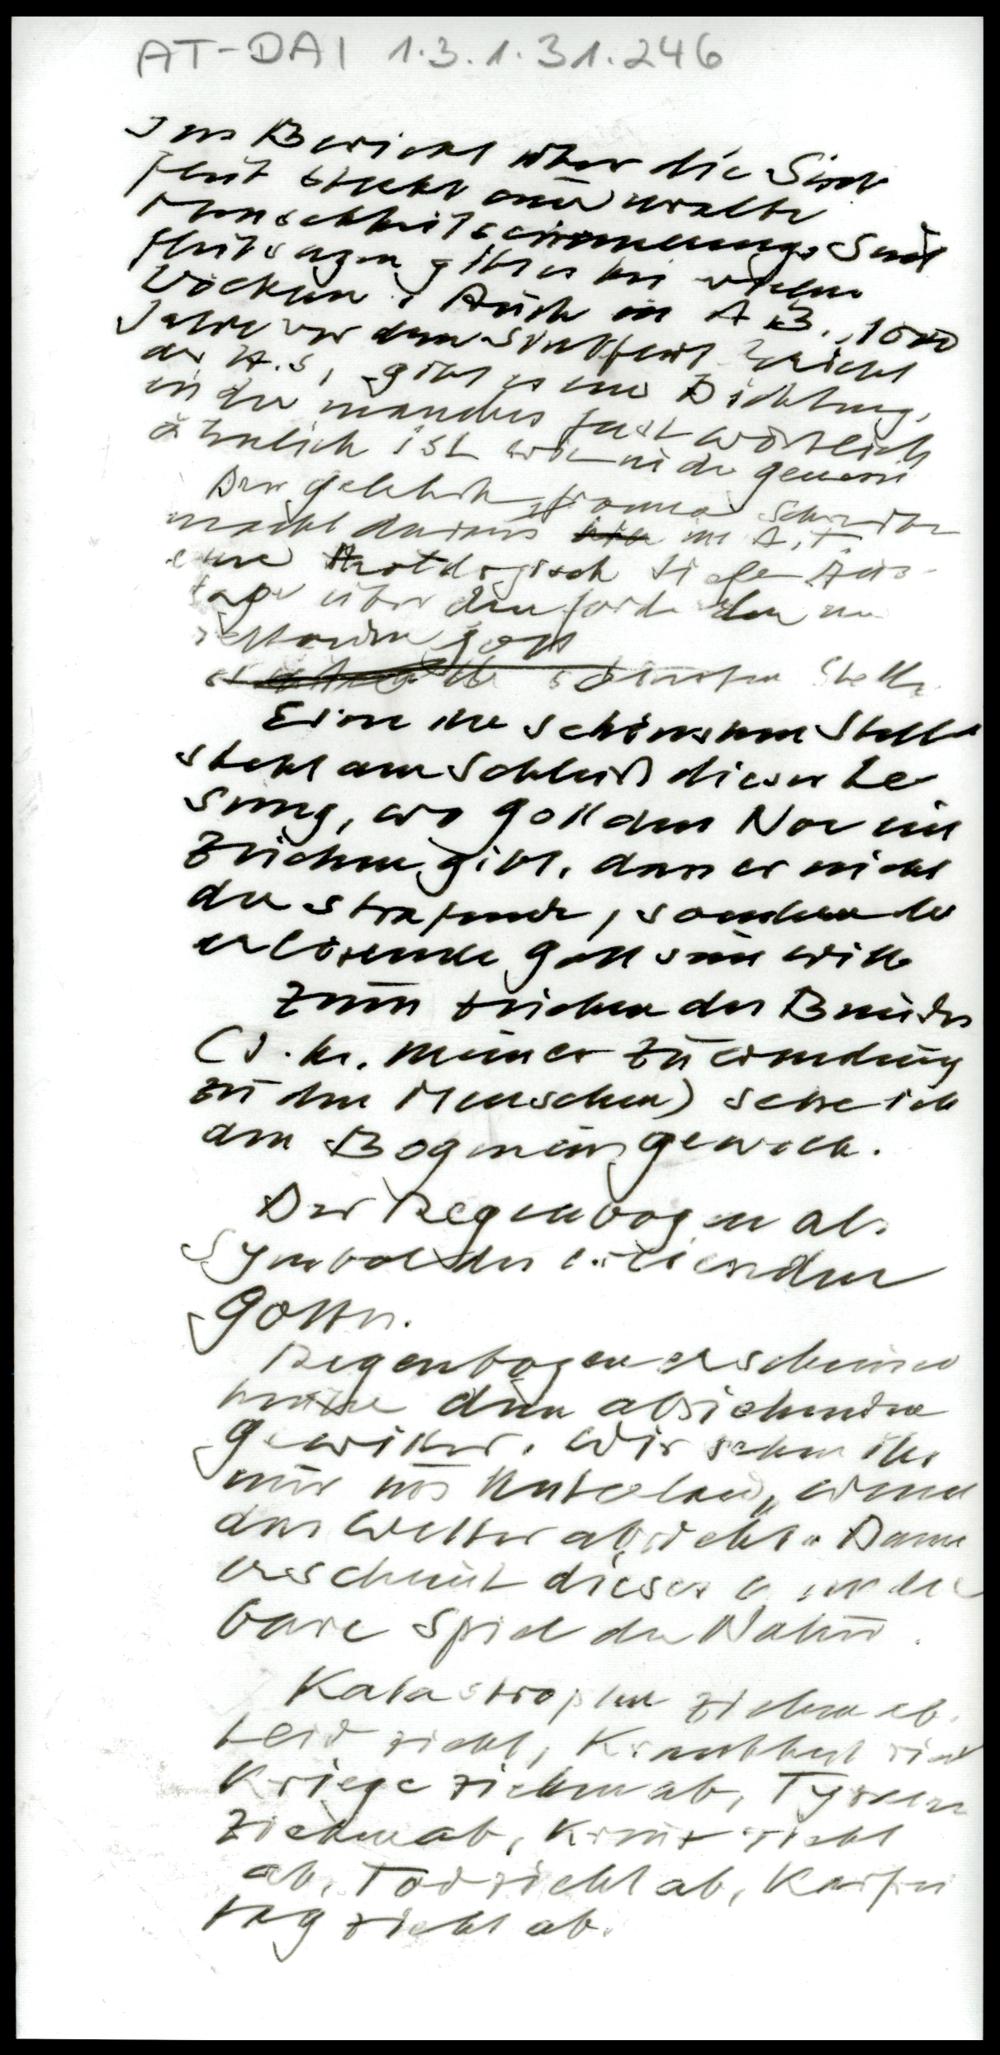 AT-DAI 1.3.1.31.246
Im Bericht über die Sint
flut steckt eine uralte
Menschheitserinnerung. Sint
flutsagen gibt es bei vielen
Völkern. Auch in AB. 1000
Jahre vor dem Sintflut Bericht
der H.S, gibt es eine Dichtung,
in der manches fast wörtlich
ähnlich ist wie in der genesis
Der gelehrte fromme Schreiber
macht daraus im A.T.
eine theologisch tiefe Aus-
sage über den
rettenden Gott
schönsten Stelle
Eine der schönsten Stelle
steht am Schluß dieser Le
sung, wo Gott dem Noe ein
Zeichen gibt, dass er nicht
der strafende, sondern der
erlösende Gott sein will
Zum Zeichen des Bundes
(d. h. meiner Zuwendung
zu den Menschen) setze ich
den Bogen ins Gewölk.
Der Regenbogen als
Symbol des erlösenden
Gottes.
Regenbogen erscheinen
hinter dem abziehenden
Gewitter. Wir sehen ihn
nur ins Unterland, wenn
das Wetter abzieht. Dann
erscheint dieses wunder
bare Spiel der Natur.
Katastrophen ziehen ab.
Leid zieht, Krankheit zieht
Kriege ziehen ab, Tyrannen
ziehen ab, Kreuz zieht
ab, Tod zieht ab, Karfrei
tag zieht ab.